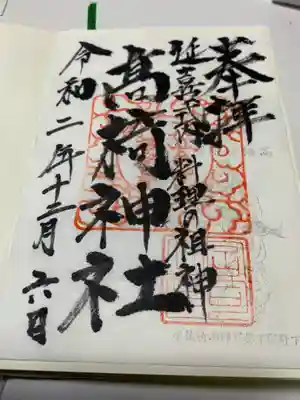 奉拝
延喜式内 料理の祖神
髙椅神社
令和二年十二月六日